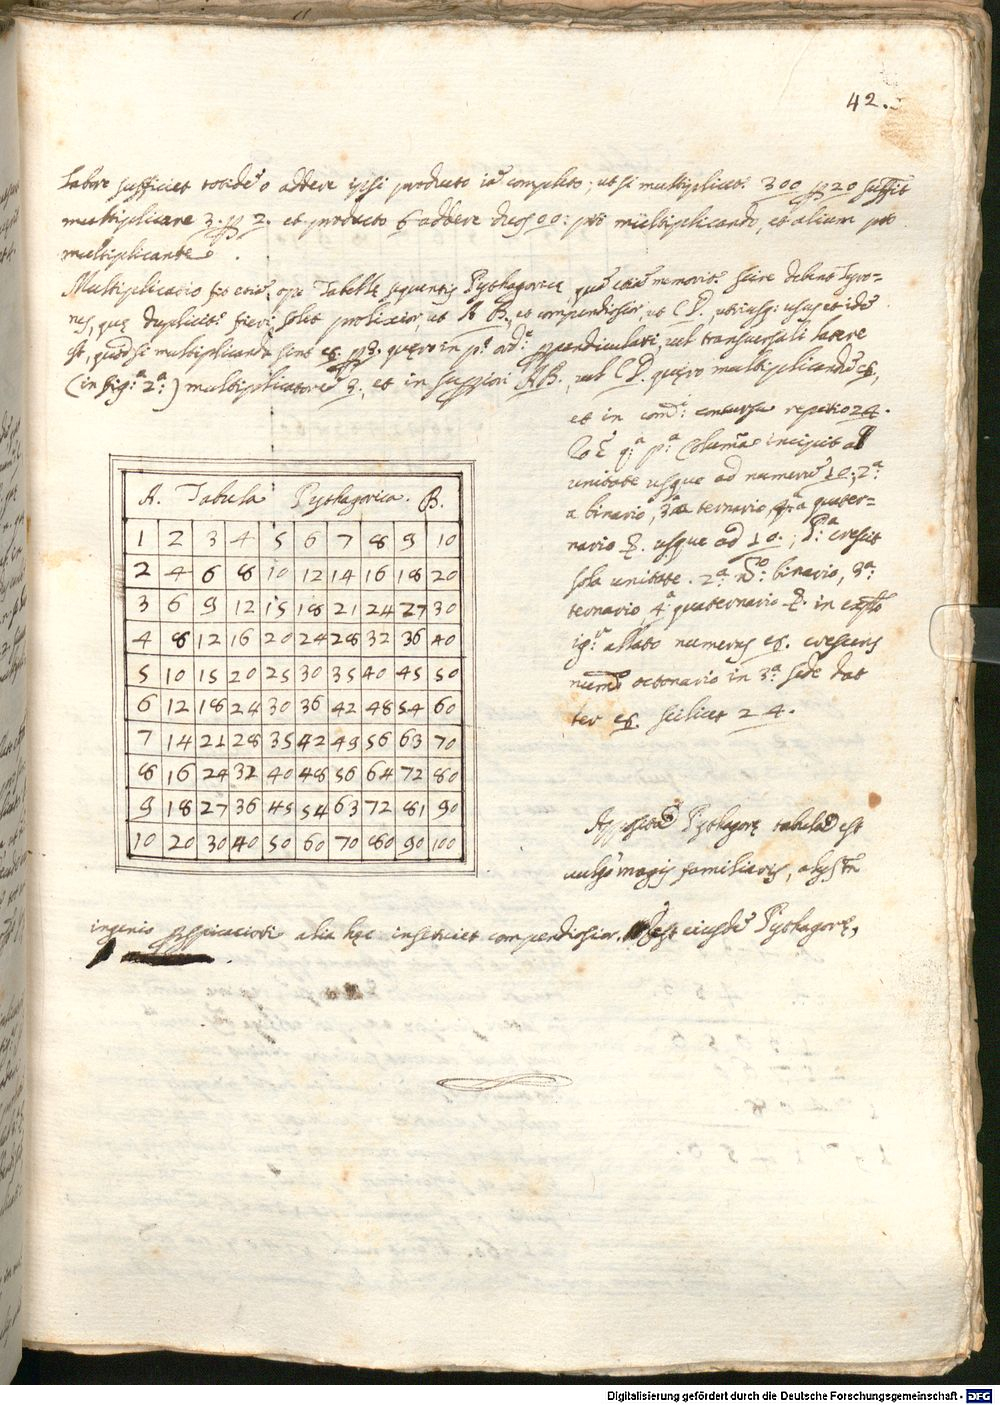 42.
labore sufficiet totidē 0 addere ipsi producto iā completo; ut si multiplicet. 300 p 20 suffit
multiplicare 3. p 2. et producto 6 addere duos 00: pro multiplicando, et alium pro
multiplicante.
Multiplicatio fit etiā ope Tabellę sequentis Pythagoricę, quā etiā memorit. scire debent Tyro-
nes, quę dupliciti fieri solet prolixior, ut A B., et compendiosior, ut C D., utriusq; usus et idē
est, quod si multiplicanda sint 8. p 3. quęro in pa. ad. ppendiculari, vel transversali latere
(in fig.a 2.a) multiplicatorē 3. et in suppiori AB., vel C D. quęro multiplicandū 8.,
et in coni: concursu reperio 24.
pa columna incipit ab
unitate usque ad numerū 10; 2.a
a binario, 3.a a ternario, 4.a a quater-
nario &. usque ad 10.; P.a crescit
sola unitate. 2.a binario, 3.a
ternario, 4.a quaternario &. in explo
igr. allato numerus 8. crescens
numō octonario in 3.a sede dat
ter 8. scilicet 24.
A. Tabula Pythagorica. B.
1 2 3 4 5 6 7 8 9 10
2 4 6 8 10 12 14 16 18 20
3 6 9 12 15 18 21 24 27 30
4 8 12 16 20 24 28 32 36 40
5 10 15 20 25 30 35 40 45 50
6 12 18 24 30 36 42 48 54 60
7 14 21 28 35 42 49 56 63 70
8 16 24 32 40 48 56 64 72 80
9 18 27 36 45 54 63 72 81 90
10 20 30 40 50 60 70 80 90 100
Apposita Pythagorę tabula est
vulgo magis familiaris, alijs tn
ingenio pspicaciori alia hęc inserviet compendiosior, est eiusdē Pythagorę,
Digitalisierung gefördert durch die Deutsche Forschungsgemeinschaft - DFG